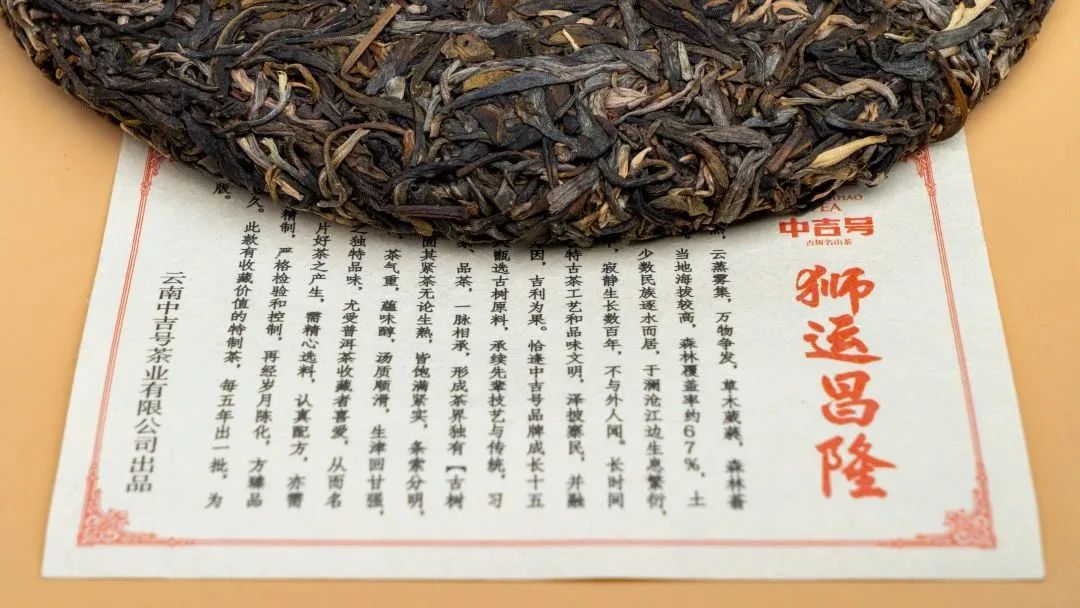 HAO
EA
中吉号
古树名山茶
狮运昌隆
，云蒸雾集，万物争发，草木葳蕤，森林蓄
。当地海拔较高，森林覆盖率约67%，土
少数民族逐水而居，于澜沧江边生息繁衍，
，寂静生长数百年，不与外人闻。长时间
特古茶工艺和品味文明，泽披寨民，并融
因，吉利为果。恰逢中吉号品牌成长十五
甄选古树原料，承续先辈技艺与传统，习
品茶，一脉相承，形成茶界独有【古树
其紧茶无论生熟，皆饱满紧实，条索分明，
茶气重，蕴味醇，汤质顺滑，生津回甘强，
之独特品味，尤受普洱茶收藏者喜爱，从而名
片好茶之产生，需精心选料，认真配方，亦需
精制，严格检验和控制，再经岁月陈化，方臻品
久。此款有收藏价值的特制茶，每五年出一批，为
版。
云南中吉号茶业有限公司出品